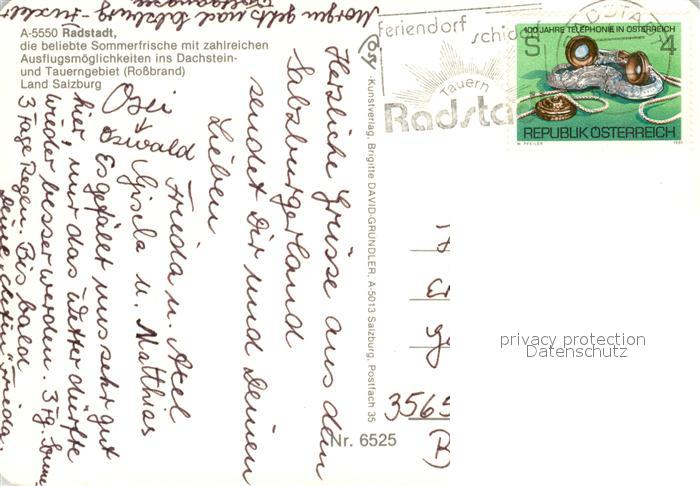 A-5550 Radstadt,
die beliebte Sommerfrische mit zahlreichen
Ausflugsmöglichkeiten ins Dachstein-
und Tauerngebiet (Roßbrand)
Land Salzburg
Morgen geht's nach Salzburg
feriendorf
schi
Tauern
Radsta
RADSTADT
100 JAHRE TELEPHONIE IN ÖSTERREICH
S 4
REPUBLIK ÖSTERREICH
W. PFEILER 1981
Kunstverlag, Brigitte DAVID-GRÜNDLER, A-5013 Salzburg, Postfach 35
Herzliche Grüsse aus dem
Salzburgerland
sendet Dir und Deinen
Lieben
Frieda u. Axel
Gisela u. Matthias
Ossi
oswald
Es gefällt uns sehr gut
hier, nur das Wetter dürfte
wieder besser werden. 3 Tg. Sonne
3 Tage Regen. Bis bald
3565
Nr. 6525
privacy protection
Datenschutz